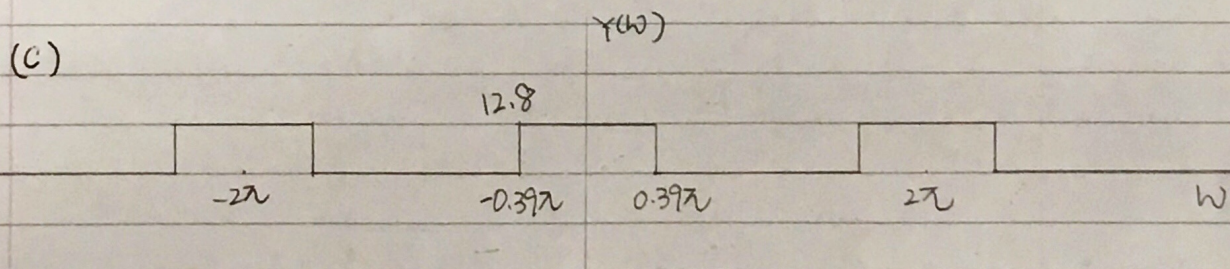 Y(ω)
(C)
12.8
-2π -0.39π 0.39π 2π ω